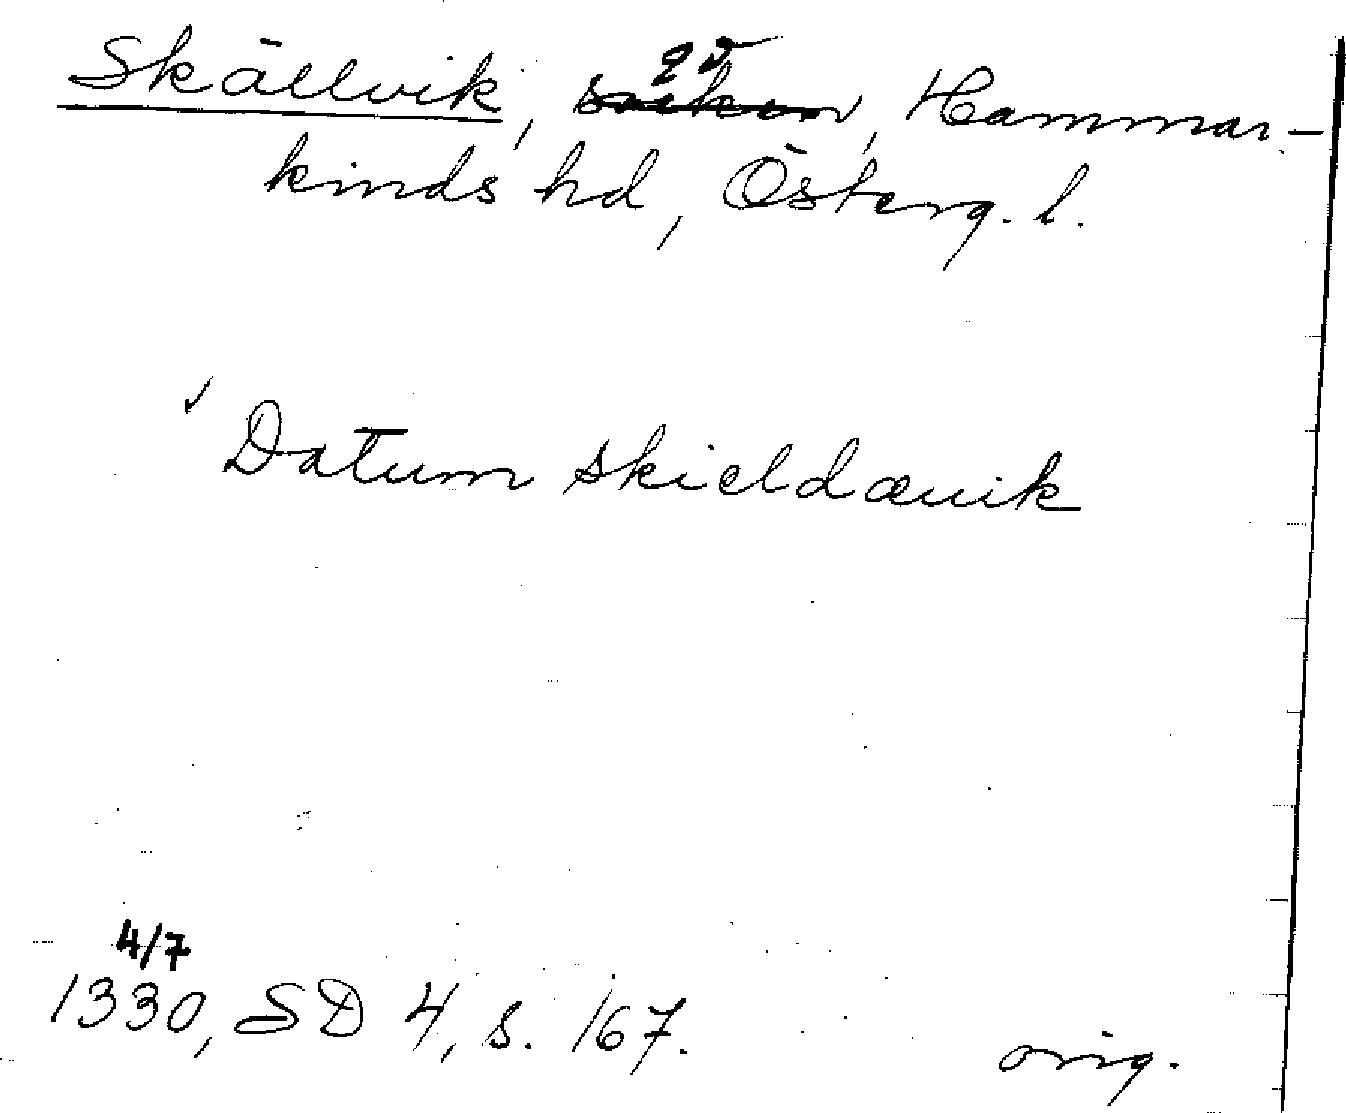 Skällvik, socken, Hammar-
kinds hd, Österg. l.
Datum skieldæuik
4/7
1330, SD 4, s. 167.
orig.